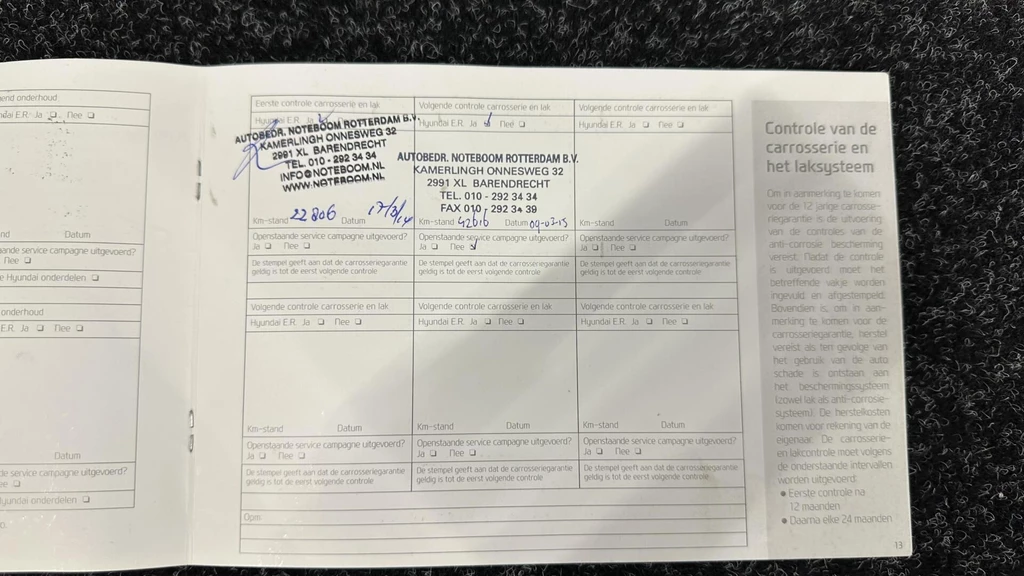 end onderhoud
dai E.R. Ja ❏ Nee ❏
nd Datum
aande service campagne uitgevoerd?
Nee ❏
e Hyundai onderdelen ❏
onderhoud
E.R. Ja ❏ Nee ❏
Datum
de service campagne uitgevoerd?
ee ❏
Hyundai onderdelen ❏
Eerste controle carrosserie en lak
Hyundai E.R. Ja
AUTOBEDR. NOTEBOOM ROTTERDAM B.V.
KAMERLINGH ONNESWEG 32
2991 XL BARENDRECHT
TEL. 010 - 292 34 34
INFO@NOTEBOOM.NL
WWW.NOTEBOOM.NL
Km-stand 22806 Datum 17/3/14
Openstaande service campagne uitgevoerd?
Ja ❏ Nee ❏
De stempel geeft aan dat de carrosseriegarantie
geldig is tot de eerst volgende controle
Volgende controle carrosserie en lak
Hyundai E.R. Ja ❏ Nee ❏
AUTOBEDR. NOTEBOOM ROTTERDAM B.V.
KAMERLINGH ONNESWEG 32
2991 XL BARENDRECHT
TEL. 010 - 292 34 34
FAX 010 - 292 34 39
Km-stand 42616 Datum 09-03-15
Openstaande service campagne uitgevoerd?
Ja ❏ Nee ❏
De stempel geeft aan dat de carrosseriegarantie
geldig is tot de eerst volgende controle
Volgende controle carrosserie en lak
Hyundai E.R. Ja ❏ Nee ❏
Km-stand Datum
Openstaande service campagne uitgevoerd?
Ja ❏ Nee ❏
De stempel geeft aan dat de carrosseriegarantie
geldig is tot de eerst volgende controle
Volgende controle carrosserie en lak
Hyundai E.R. Ja ❏ Nee ❏
Km-stand Datum
Openstaande service campagne uitgevoerd?
Ja ❏ Nee ❏
De stempel geeft aan dat de carrosseriegarantie
geldig is tot de eerst volgende controle
Volgende controle carrosserie en lak
Hyundai E.R. Ja ❏ Nee ❏
Km-stand Datum
Openstaande service campagne uitgevoerd?
Ja ❏ Nee ❏
De stempel geeft aan dat de carrosseriegarantie
geldig is tot de eerst volgende controle
Volgende controle carrosserie en lak
Hyundai E.R. Ja ❏ Nee ❏
Km-stand Datum
Openstaande service campagne uitgevoerd?
Ja ❏ Nee ❏
De stempel geeft aan dat de carrosseriegarantie
geldig is tot de eerst volgende controle
Opm:
Controle van de
carrosserie en
het laksysteem
Om in aanmerking te komen
voor de 12 jarige carrosse-
riegarantie is de uitvoering
van de controles van de
anti-corrosie bescherming
vereist. Nadat de controle
is uitgevoerd moet het
betreffende vakje worden
ingevuld en afgestempeld.
Bovendien is, om in aan-
merking te komen voor de
carrosseriegarantie, herstel
vereist als ten gevolge van
het gebruik van de auto
schade is ontstaan aan
het beschermingssysteem
(zowel lak als anti-corrosie-
systeem). De herstelkosten
komen voor rekening van de
eigenaar. De carrosserie-
en lakcontrole moet volgens
de onderstaande intervallen
worden uitgevoerd:
● Eerste controle na
12 maanden
● Daarna elke 24 maanden
13